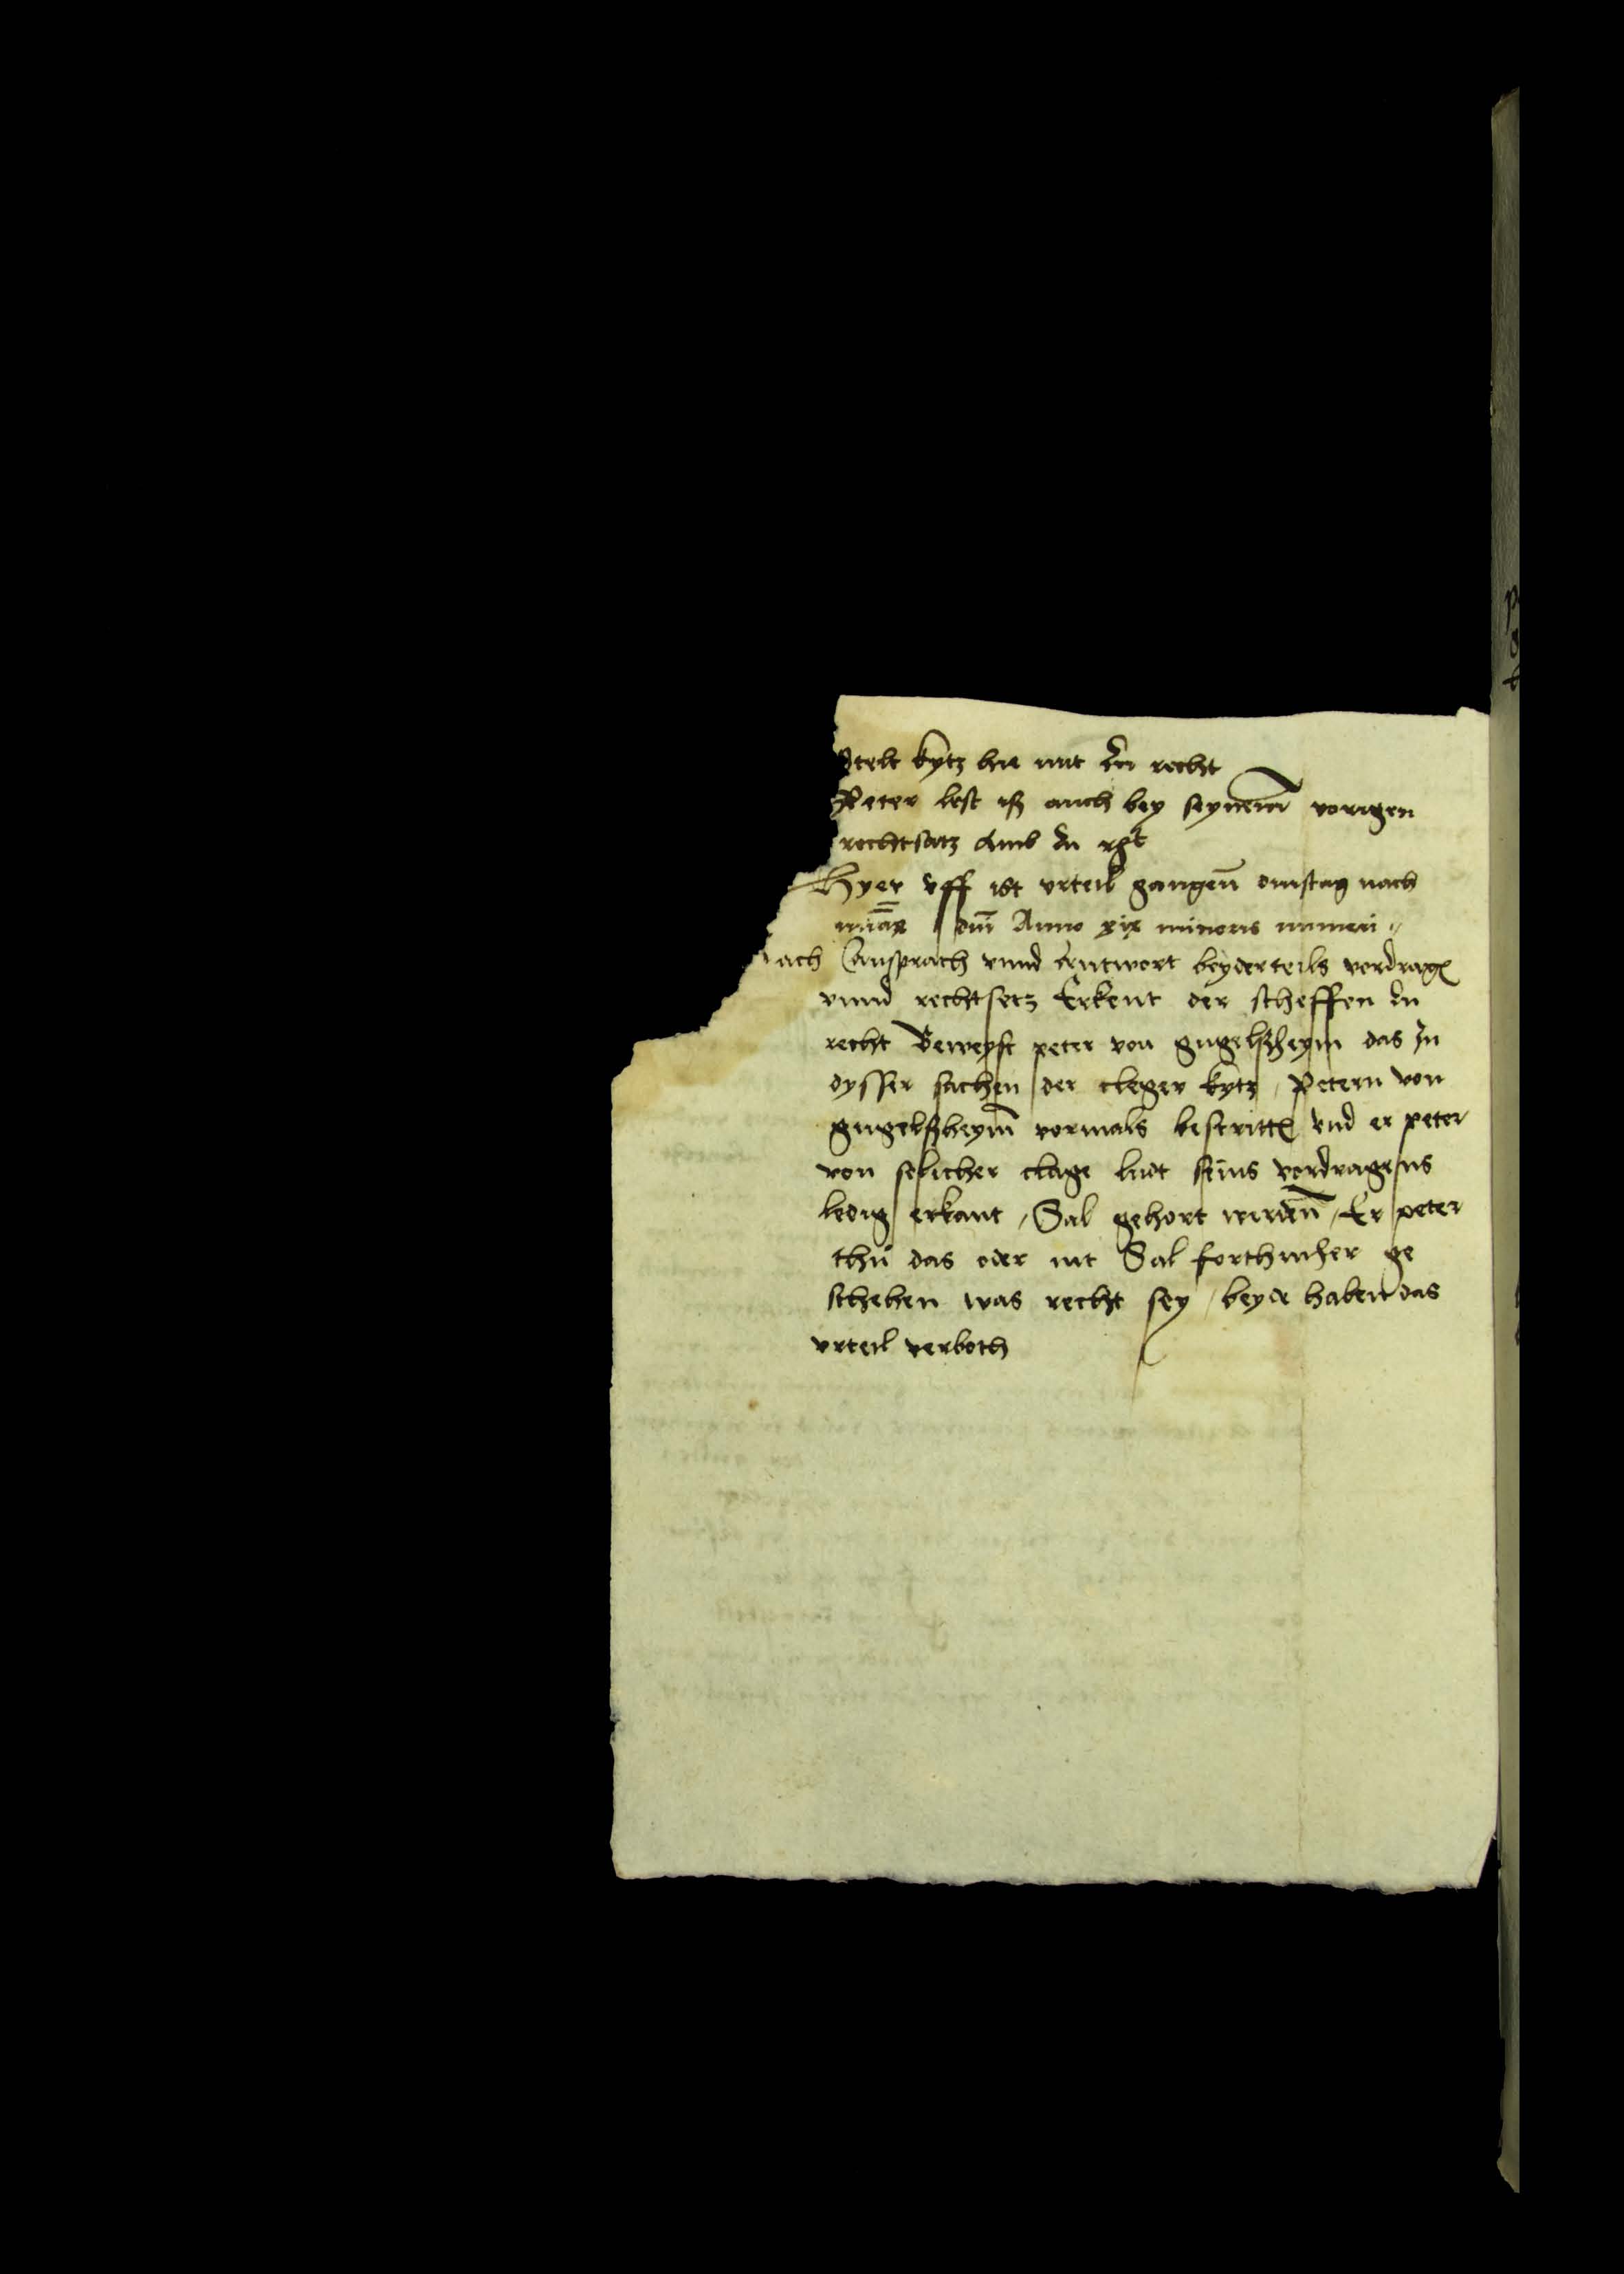 Stelt kytz hie mit zu recht
Peter lest iß auch bey seynem vorigen
rechtsatz zu
Hyer vff ist vrteil gangen dinstag nach
dni Anno xix minoris numeri
Nach Ansprach vnnd Antwort beyderteils vordrag
vnnd rechtsetz Erkent der scheffen zu
recht Beweyst peter von gugelßheym das In
dysser sachen der cleger kytz / Petern von
gugelßheym vormals bestritt vnd er peter
von solicher clage ludt seins vordragens
ledig erkant / Sal gehort werden / Er peter
thu das oder nit Sal forthin her ge
schehen was recht sey / beyde haben das
vrteil verboth